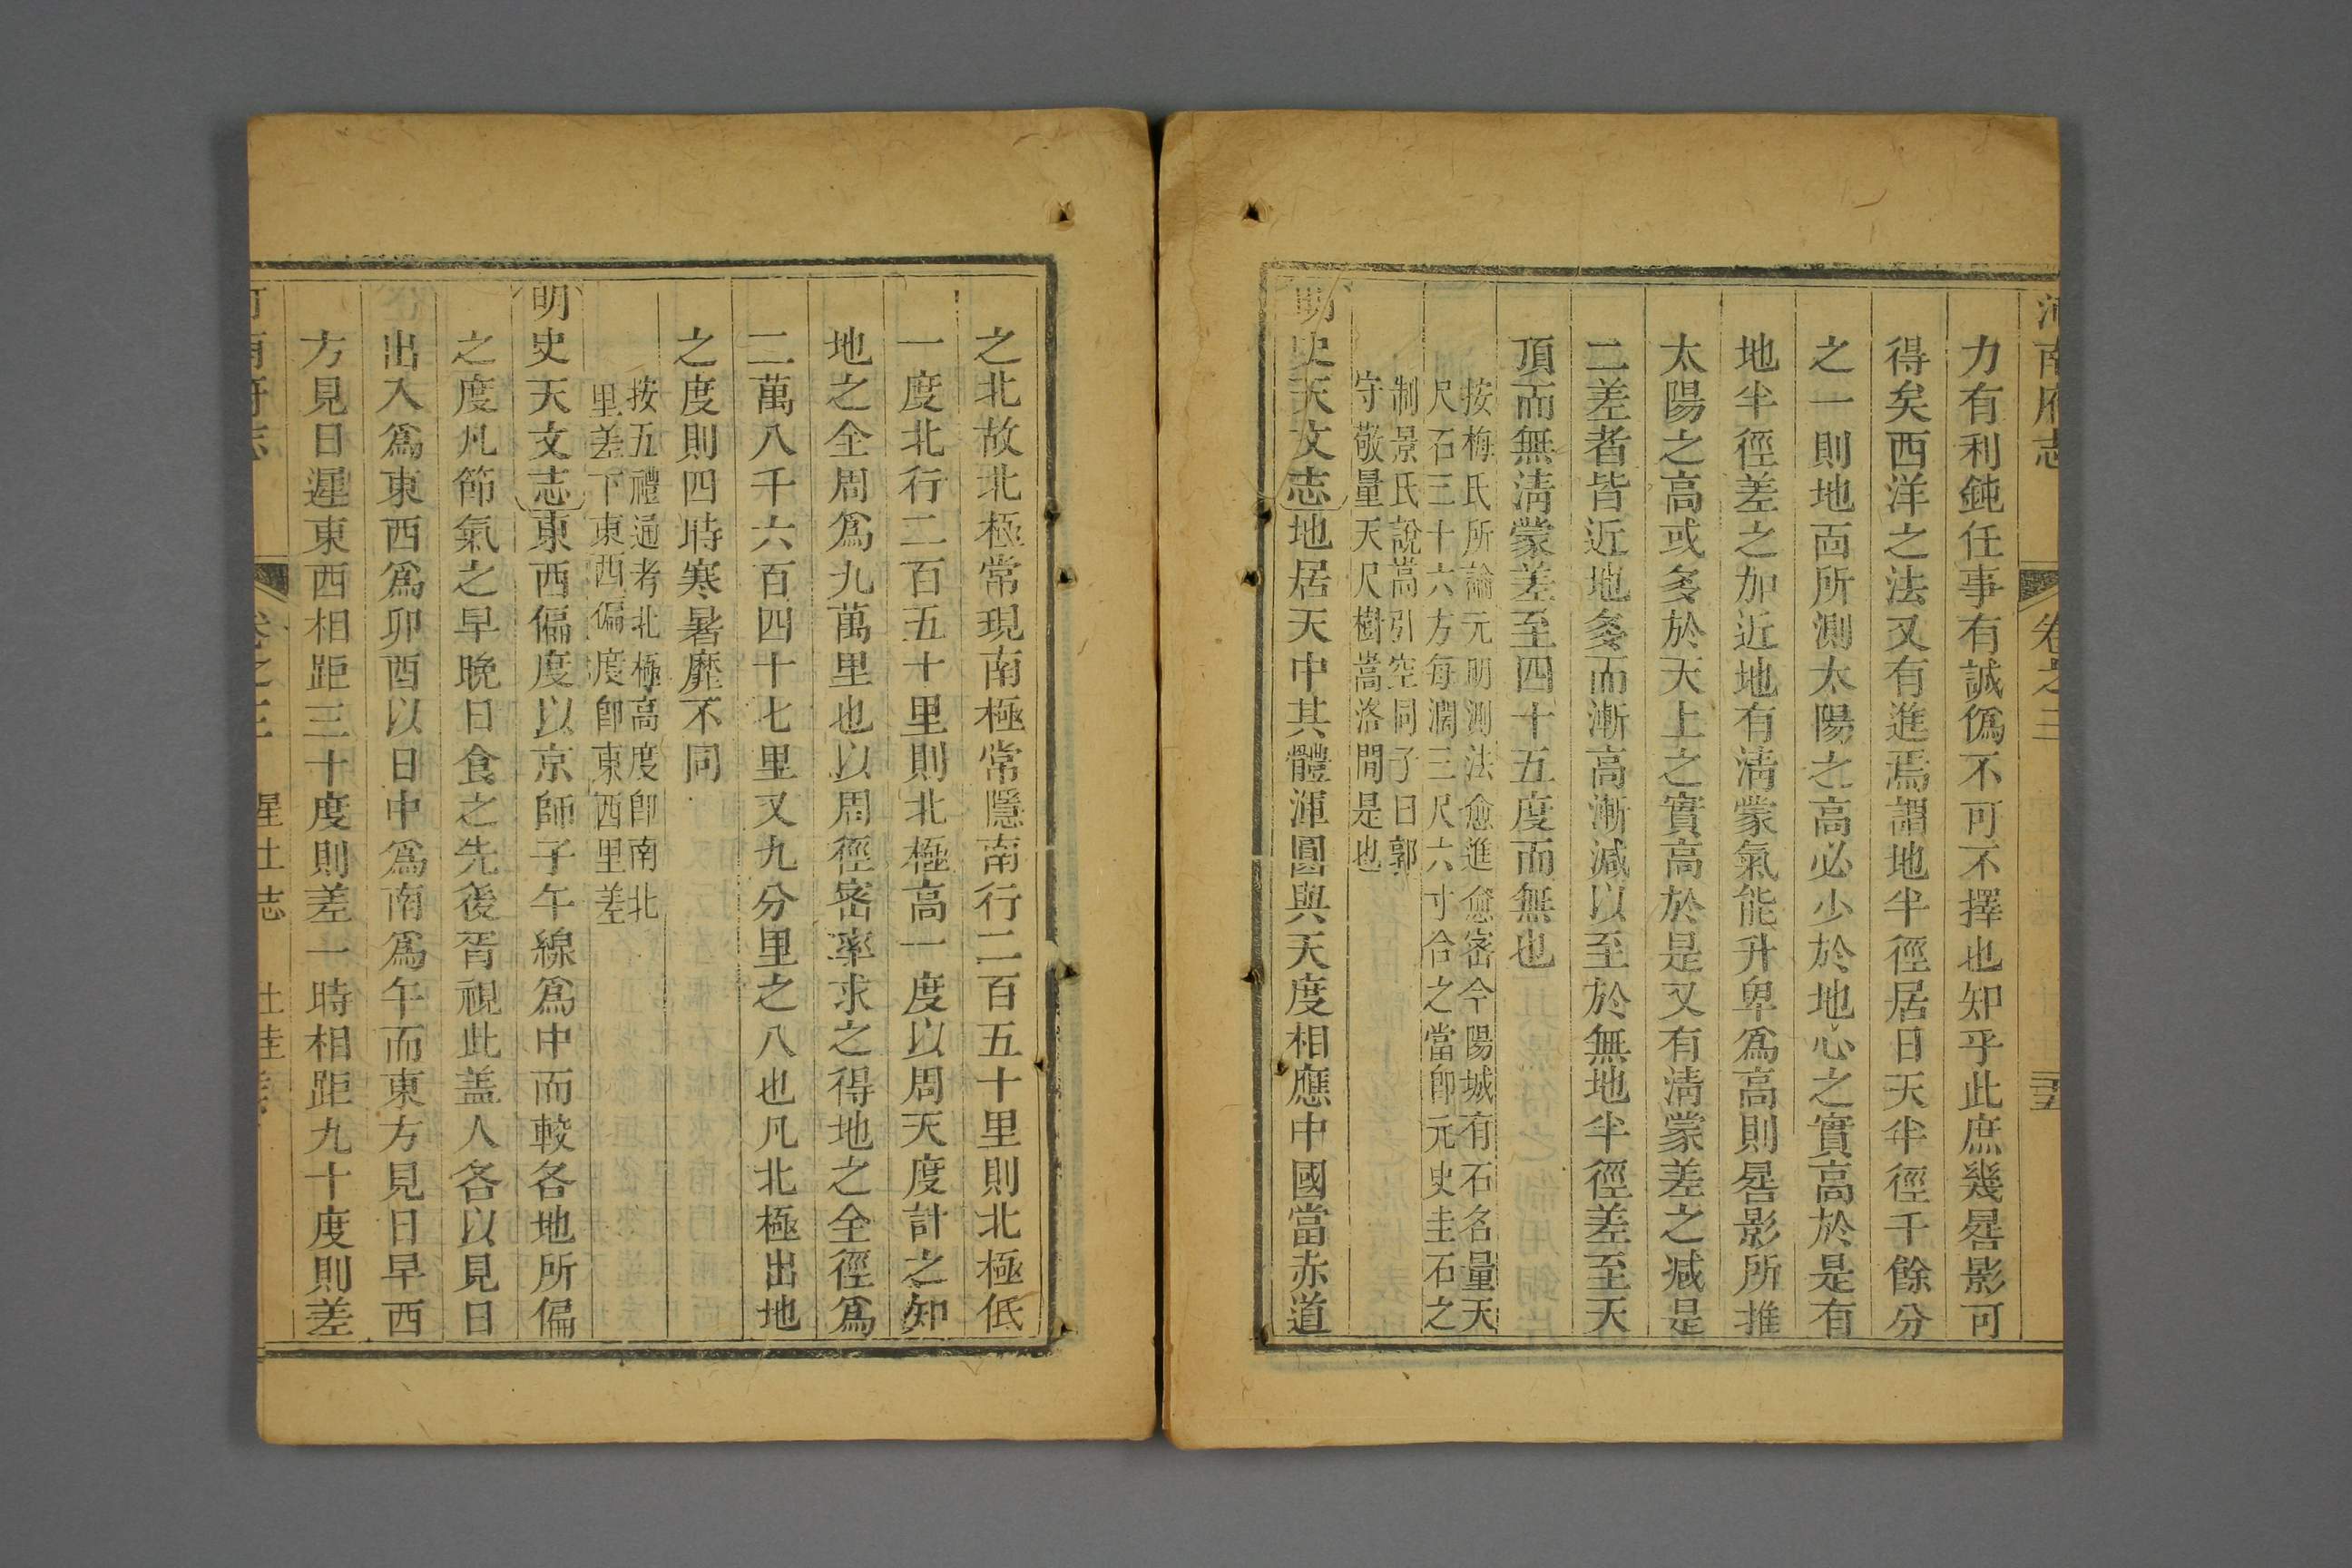 河南府志 卷之三
力有利鈍任事有誠僞不可不擇也知乎此庶幾晷影可
得矣西洋之法又有進焉謂地半徑居日天半徑千餘分
之一則地面所測太陽之高必少於地心之實高於是有
地半徑差之加近地有淸蒙氣能升卑爲高則晷影所推
太陽之高或多於天上之實高於是又有淸蒙差之減是
二差者皆近地多而漸高漸減以至於無地半徑差至天
頂而無淸蒙差至四十五度而無也
按梅氏所論元明測法愈進愈密今陽城有石名量天
尺石三十六方每濶三尺六寸合之當卽元史圭石之
制景氏說嵩引空同子曰郭
守敬量天尺樹嵩洛間是也
明史天文志地居天中其體渾圓與天度相應中國當赤道
之北故北極常現南極常隱南行二百五十里則北極低
一度北行二百五十里則北極高一度以周天度計之知
地之全周爲九萬里也以周徑密率求之得地之全徑爲
二萬八千六百四十七里又九分里之八也凡北極出地
之度則四時寒暑靡不同
按五禮通考北極高度卽南北
里差下東西偏度卽東西里差
明史天文志東西偏度以京師子午線爲中而較各地所偏
之度凡節氣之早晩日食之先後胥視此盖人各以見日
出入爲東西爲卯酉以日中爲南爲午而東方見日早西
方見日遲東西相距三十度則差一時相距九十度則差
河南府志 卷之三 星土志